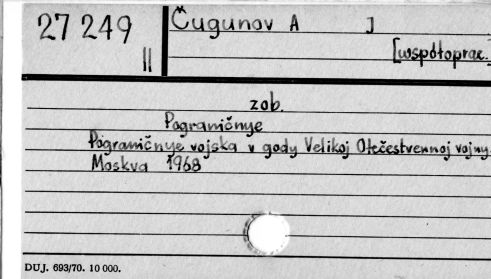 27 249
II
Čugunov A J
[współoprac.]
zob.
Pograničnye
Pograničnye vojska v gody Velikoj Otečestvennoj vojny
Moskva 1968
DUJ. 693/70. 10 000.